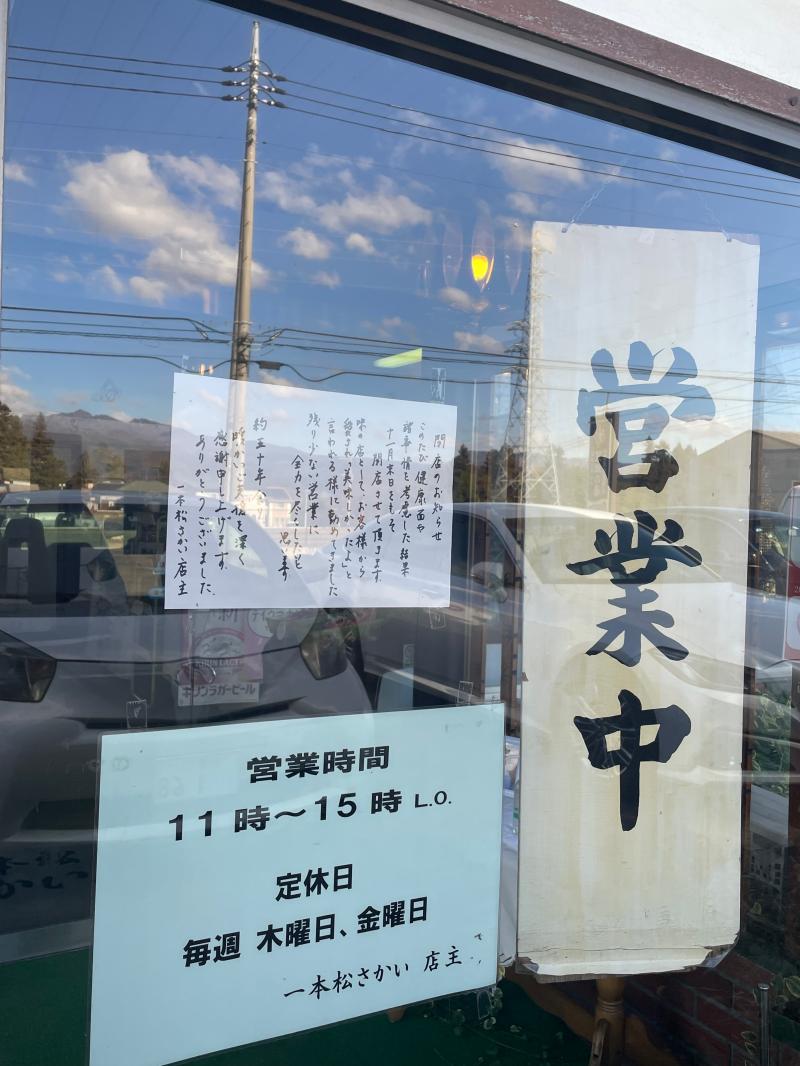 営業中
閉店のお知らせ
このたび健康面や
諸事情を考慮した結果
十一月末日をもちまして
閉店させて頂きます。
味の店としてお客様から
愛され「美味しかったよ」と
言われる様に勤めてきました
残り少ない営業に
全力を尽くしたいと
思います
約五十年
暖かいご支援を深く
感謝申し上げます。
ありがとうございました。
一本松さかい店主
キリンラガービール
営業時間
11時～15時 L.O.
定休日
毎週 木曜日、金曜日
一本松さかい 店主